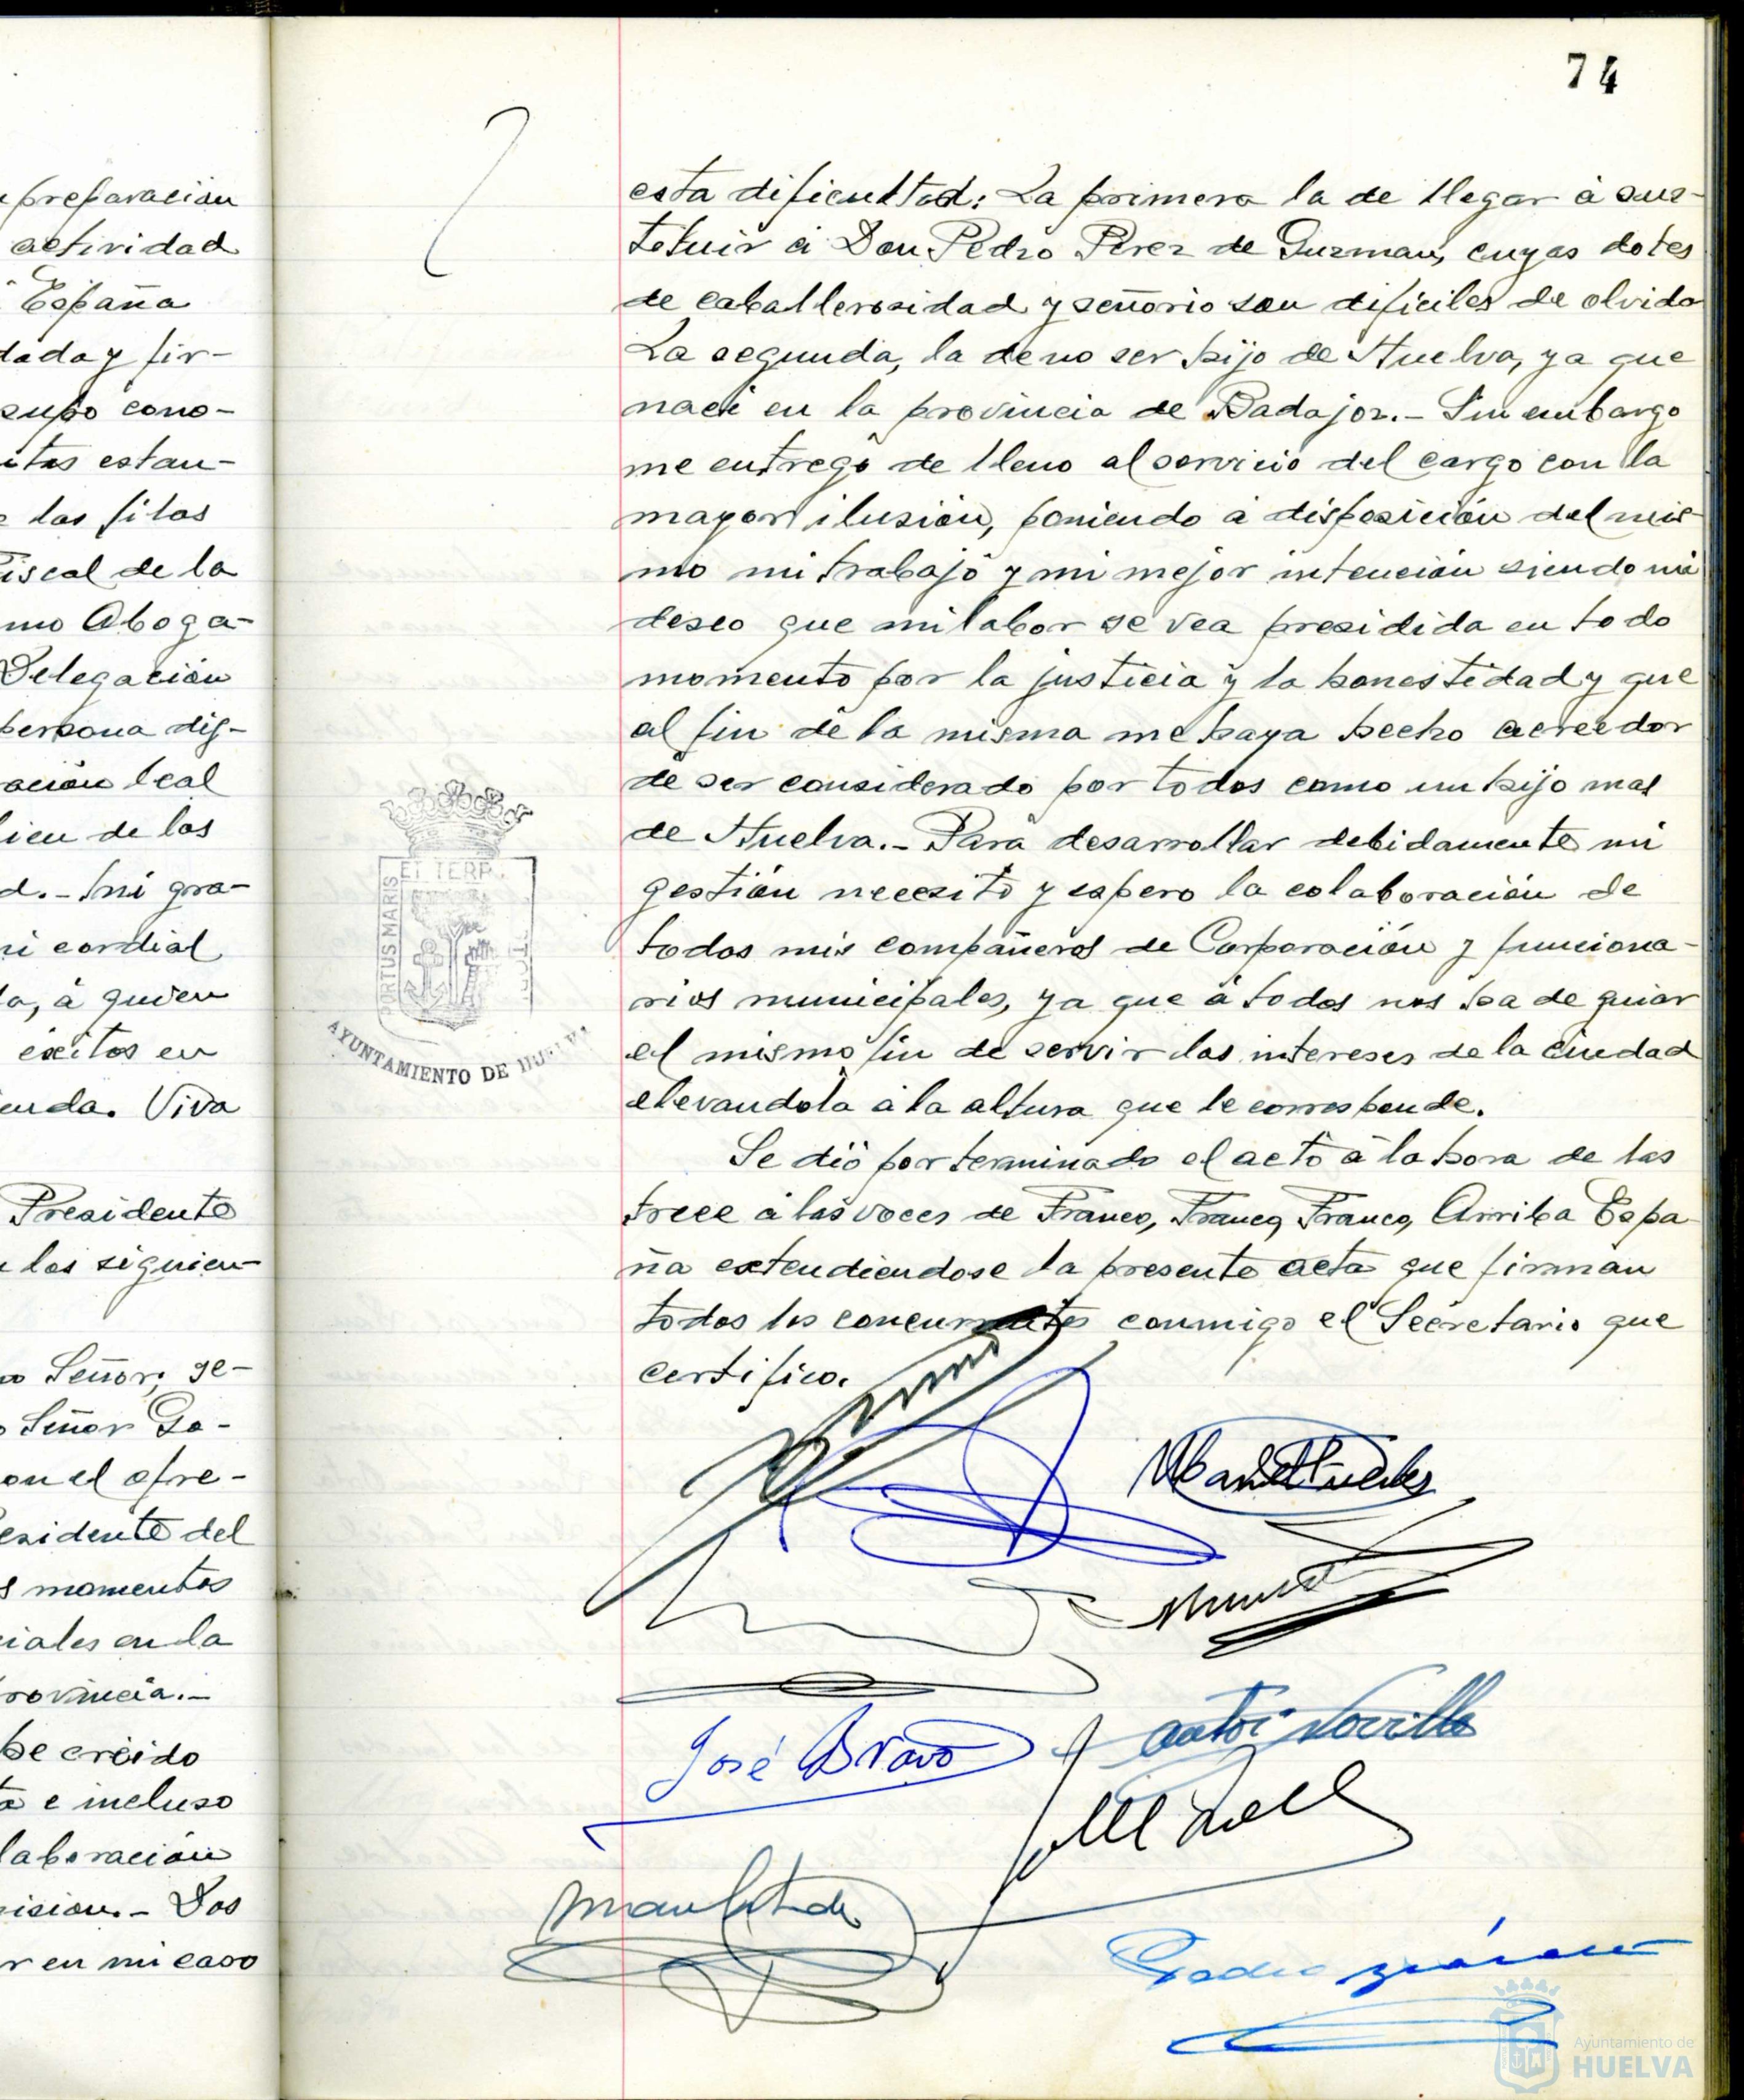 preparación
actividad
España
dada y fir-
supo cono-
estan-
las filas
Fiscal de la
mo Aboga-
Delegación
persona dig-
leal
bien de los
mi gra-
mi cordial
à quien
éxitos en
Viva
Presidente
los siguien-
Señor; se-
Señor Go-
on el ofre-
Presidente del
momentos
ciales en la
provincia.-
he creido
e incluso
laboración
Dos
r en mi caso
74
esta dificultad: La primera la de llegar à sus-
tetuir à Don Pedro Perez de Guzman, cuyas dotes
de caballerosidad y señorio son dificiles de olvido
La segunda, la de no ser hijo de Huelva, ya que
naci en la provincia de Badajoz.- Sin embargo
me entregó de lleno al servicio del cargo con la
mayor ilusión, poniendo à disposición del mis-
mo mi trabajo y mi mejor intención siendo mi
deseo que mi labor se vea presidida en todo
momento por la justicia y la honestidad y que
al fin de la misma me haya hecho acreedor
de ser considerado por todos como un hijo mas
de Huelva.- Para desarrollar debidamente mi
gestión necesito y espero la colaboración de
todos mis compañeros de Corporación y funciona-
rios municipales, ya que à todos nos ha de guiar
el mismo fin de servir los intereses de la ciudad
elevandola à la altura que le corresponde.
Se dió por terminado el acto à la hora de las
trece à las voces de Franco, Franco, Franco, Arriba Espa-
ña extendiendose la presente acta que firman
todos los concurrentes conmigo el Secretario que
certifico.
PORTUS MARIS
ET TERR.
AYUNTAMIENTO DE HUELVA
José Bravo
Ayuntamiento de
HUELVA